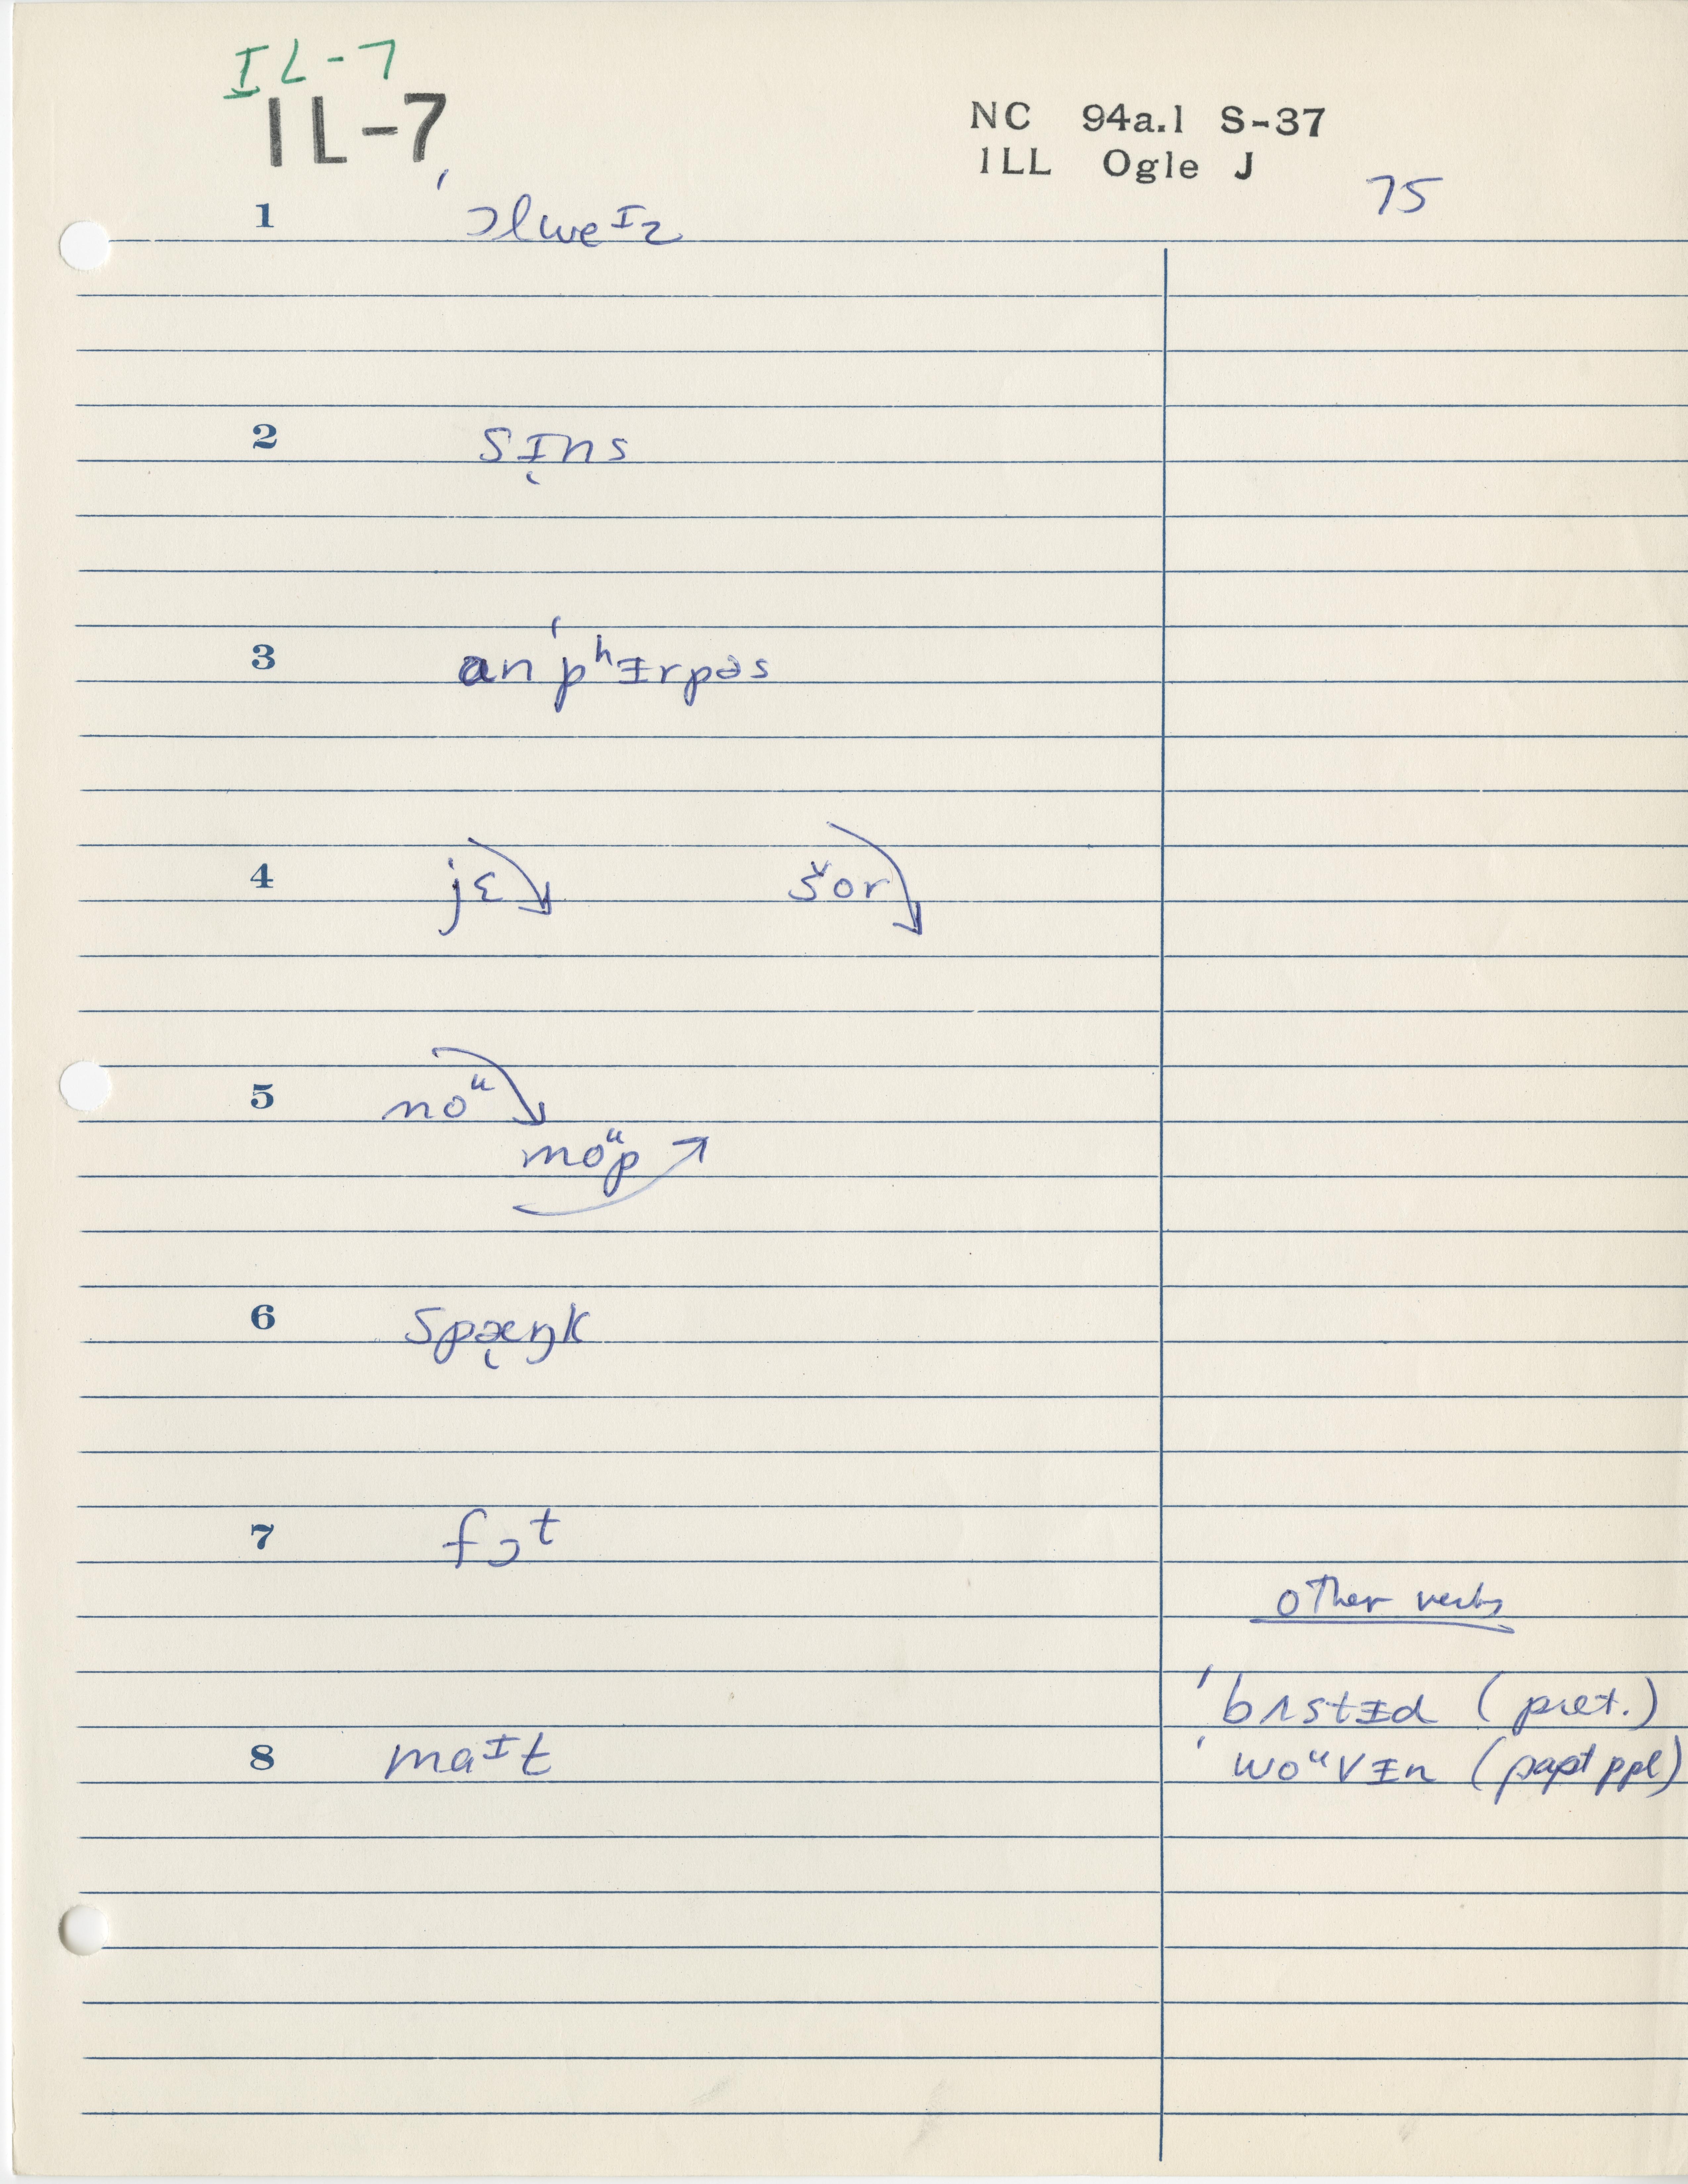 IL-7
IL-7
NC 94a.1 S-37
ILL Ogle J
75
1 ˈɔlweᶦz
2 sɪ̨ns
3 anˈpʰᵻrpəs
4 jɛ šor
5 noᵘ
moᵘp
6 spæ̨ŋk
7 fɔt
other verbs
ˈbʌstᵻd (pret.)
8 maᶦt
ˈwoᵘvᵻn (past ppl)